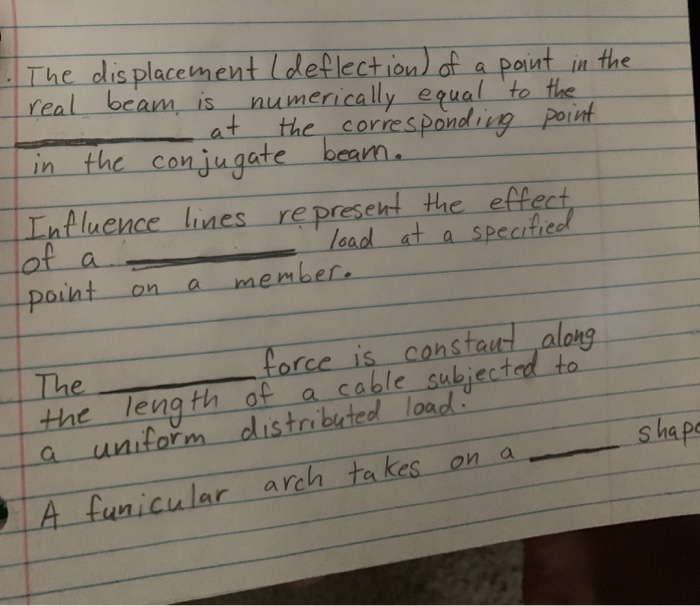 . The displacement (deflection) of a point in the
real beam is numerically equal to the
__________ at the corresponding point
in the conjugate beam.
Influence lines represent the effect
of a __________ load at a specified
point on a member.
The __________ force is constant along
the length of a cable subjected to
a uniform distributed load.
A funicular arch takes on a ______ shape